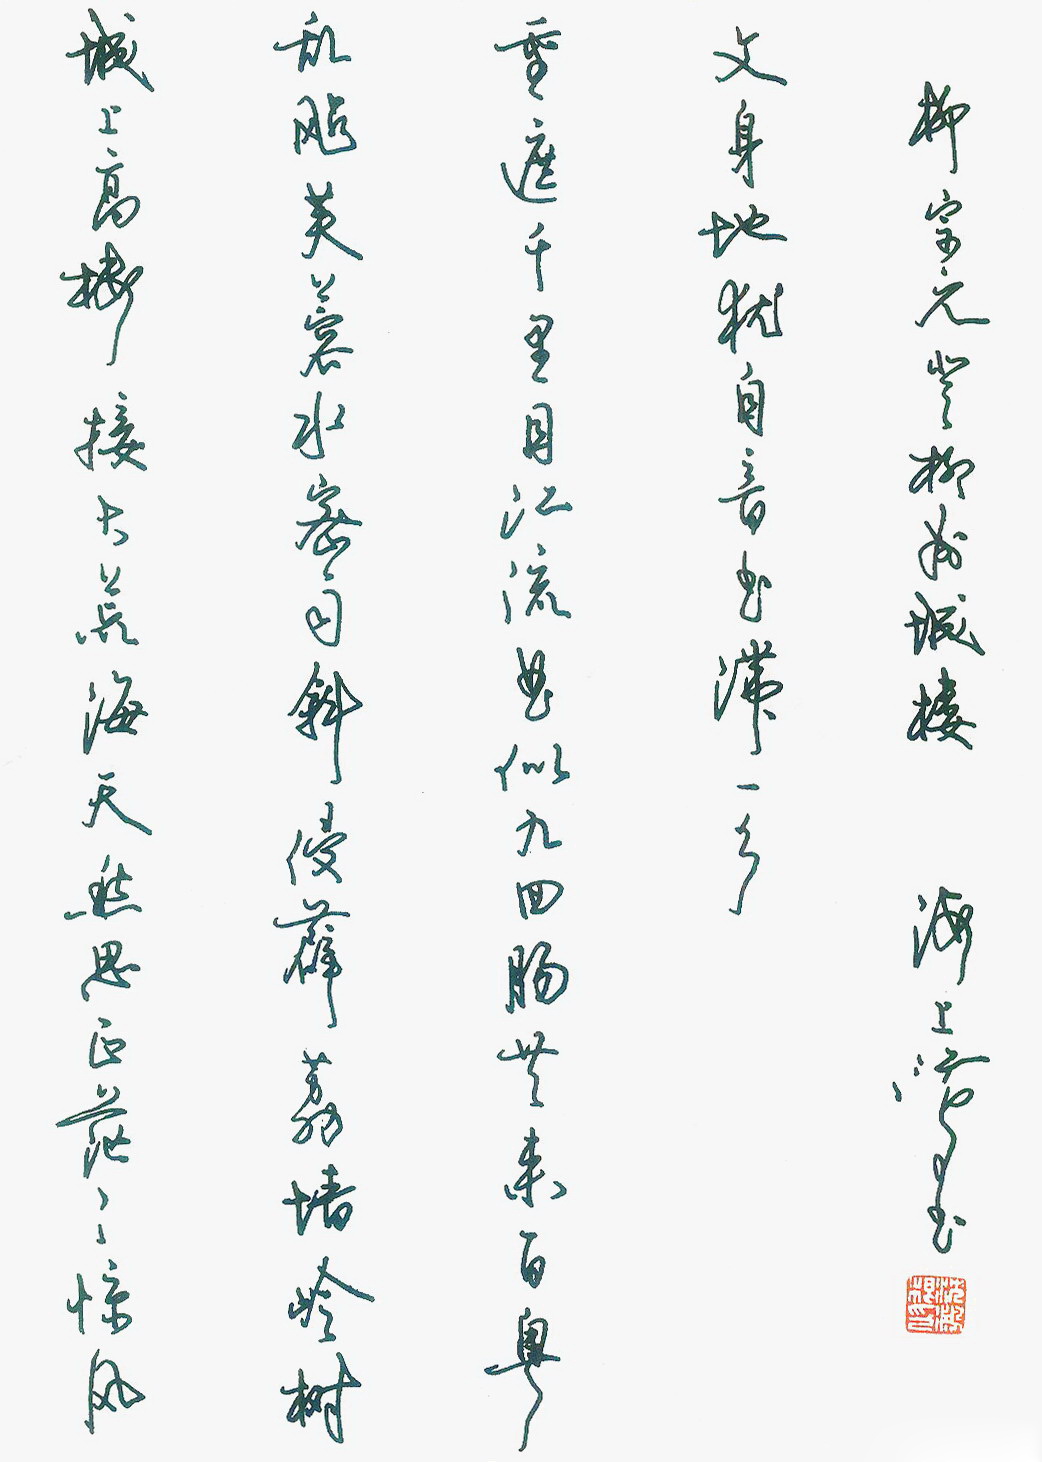 城上高楼接大荒海天愁思正茫々惊风
乱飐芙蓉水密雨斜侵薜荔墙岭树
重遮千里目江流曲似九回肠共来百粤
文身地犹自音书滞一乡
柳宗元登柳州城楼 海上